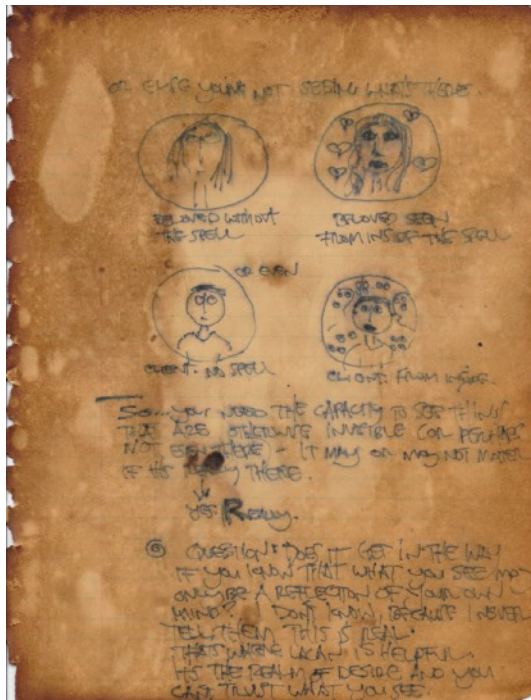 OR ELSE YOU'RE NOT SEEING WHAT'S THERE.
BELOVED WITHOUT
THE SPELL
BELOVED SEEN
FROM INSIDE THE SPELL
OR EVEN
CLIENT: NO SPELL
CLIENT: FROM INSIDE.
SO... YOU NEED THE CAPACITY TO SEE THINGS
THAT ARE OTHERWISE INVISIBLE (OR PERHAPS
NOT EVEN THERE - IT MAY OR MAY NOT MATTER
IF IT'S REALLY THERE.
YES. REALLY.
QUESTION: DOES IT GET IN THE WAY
IF YOU KNOW THAT WHAT YOU SEE MAY
ONLY BE A REFLECTION OF YOUR OWN
MIND? I DON'T KNOW, BECAUSE I NEVER
TELL THEM THIS IS REAL.
THAT'S WHERE LACAN IS HELPFUL.
IT'S THE REALM OF DESIRE AND YOU
CAN'T TRUST WHAT YOU SEE